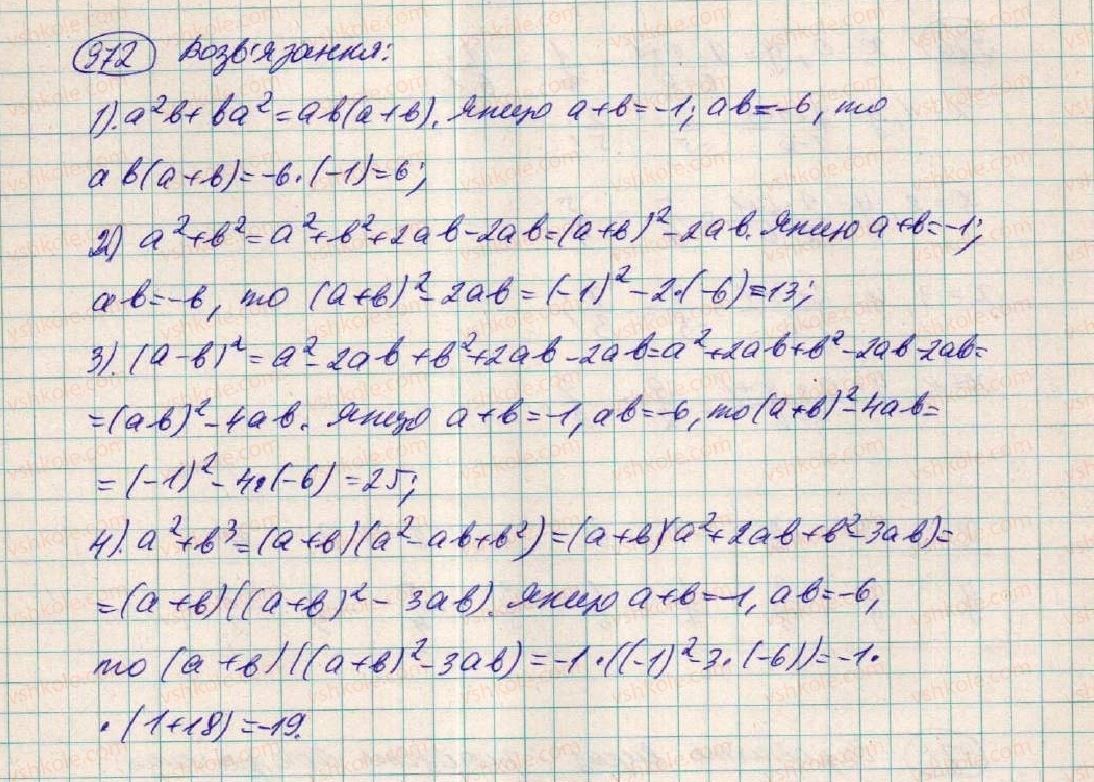 972 Розв'язання:
1). a²b + ba² = ab(a+b). Якщо a+b = -1; ab = -6, то
ab(a+b) = -6·(-1) = 6;
2) a²+b² = a²+b²+2ab-2ab = (a+b)²-2ab. Якщо a+b = -1;
ab = -6, то (a+b)²-2ab = (-1)²-2·(-6) = 13;
3). (a-b)² = a²-2ab+b²+2ab-2ab = a²+2ab+b²-2ab-2ab =
= (ab)²-4ab. Якщо a+b = -1, ab = -6, то (a+b)²-4ab =
= (-1)²-4·(-6) = 25;
4). a²+b³ = (a+b)(a²-ab+b²) = (a+b)(a²+2ab+b²-3ab) =
= (a+b)((a+b)²-3ab). Якщо a+b = -1, ab = -6,
то (a+b)((a+b)²-3ab) = -1·((-1)²-3·(-6)) = -1·
·(1+18) = -19.